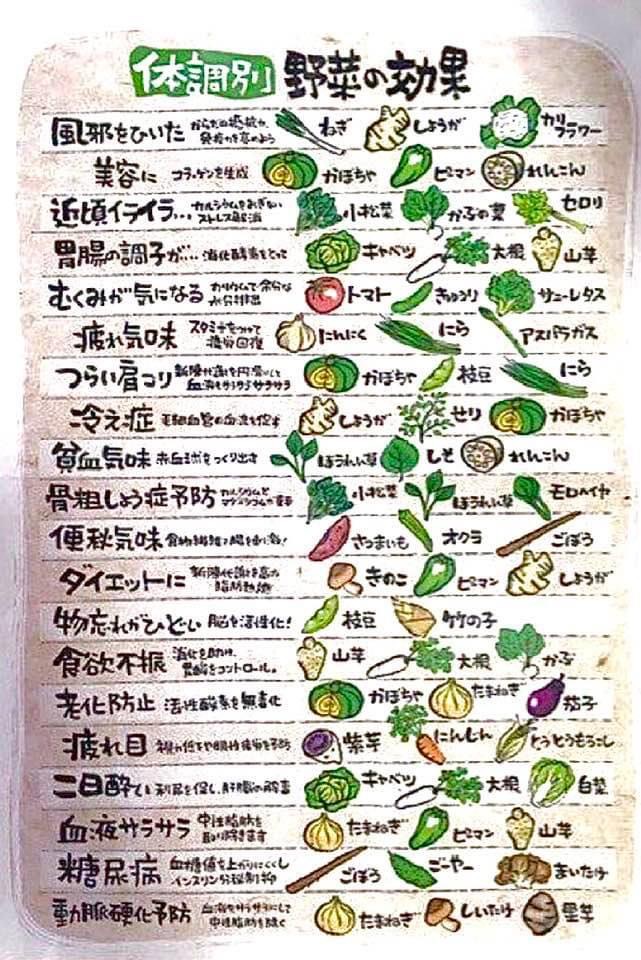 体調別 野菜の効果
風邪をひいた からだの抵抗力、免疫力を高めよう ねぎ しょうが カリフラワー
美容に コラーゲンを生成 かぼちゃ ピーマン れんこん
近頃イライラ… カルシウムをおぎないストレス解消 小松菜 かぶの葉 セロリ
胃腸の調子が… 消化酵素をとって キャベツ 大根 山芋
むくみが気になる カリウムで余分な水分排出 トマト きゅうり サニーレタス
疲れ気味 スタミナをつけて疲労回復 にんにく にら アスパラガス
つらい肩コリ 新陳代謝を円滑にして血液をサラサラサラサラ かぼちゃ 枝豆 にら
冷え症 毛細血管の血流を促す しょうが セリ かぼちゃ
貧血気味 赤血球をつくり出す ほうれん草 しそ れんこん
骨粗しょう症予防 カルシウムとマグネシウムが 小松菜 ほうれん草 モロヘイヤ
便秘気味 食物繊維で腸を さつまいも オクラ ごぼう
ダイエットに 新陳代謝を高め脂肪燃焼 きのこ ピーマン しょうが
物忘れがひどい 脳を活性化! 枝豆 竹の子
食欲不振 消化を助け、胃酸をコントロール。 山芋 大根 かぶ
老化防止 活性酸素を無毒化 かぼちゃ たまねぎ 茄子
疲れ目 視力低下や眼精疲労を予防 紫芋 にんじん とうもろこし
二日酔い 利尿を促し、肝臓の解毒 キャベツ 大根 白菜
血液サラサラ 中性脂肪を取り除きます たまねぎ ピーマン 山芋
糖尿病 血糖値を上がりにくくしインスリン分泌制抑 ごぼう ごーやー まいたけ
動脈硬化予防 血液をサラサラにして中性脂肪を除く たまねぎ しいたけ 里芋